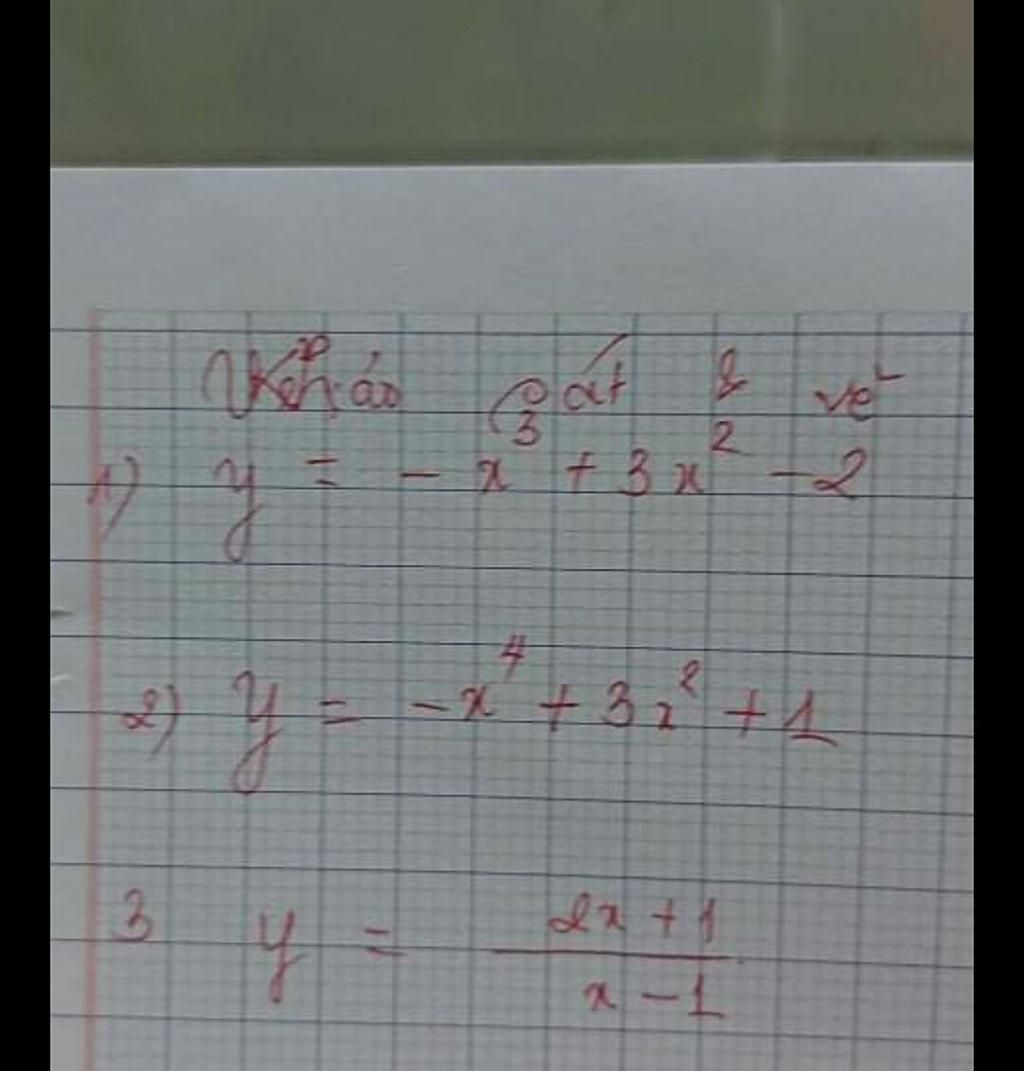 Khảo sát & vẽ
1) y = - x³ + 3x² - 2
2) y = -x⁴ + 3x² + 1
3 y = \frac{2x + 1}{x - 1}